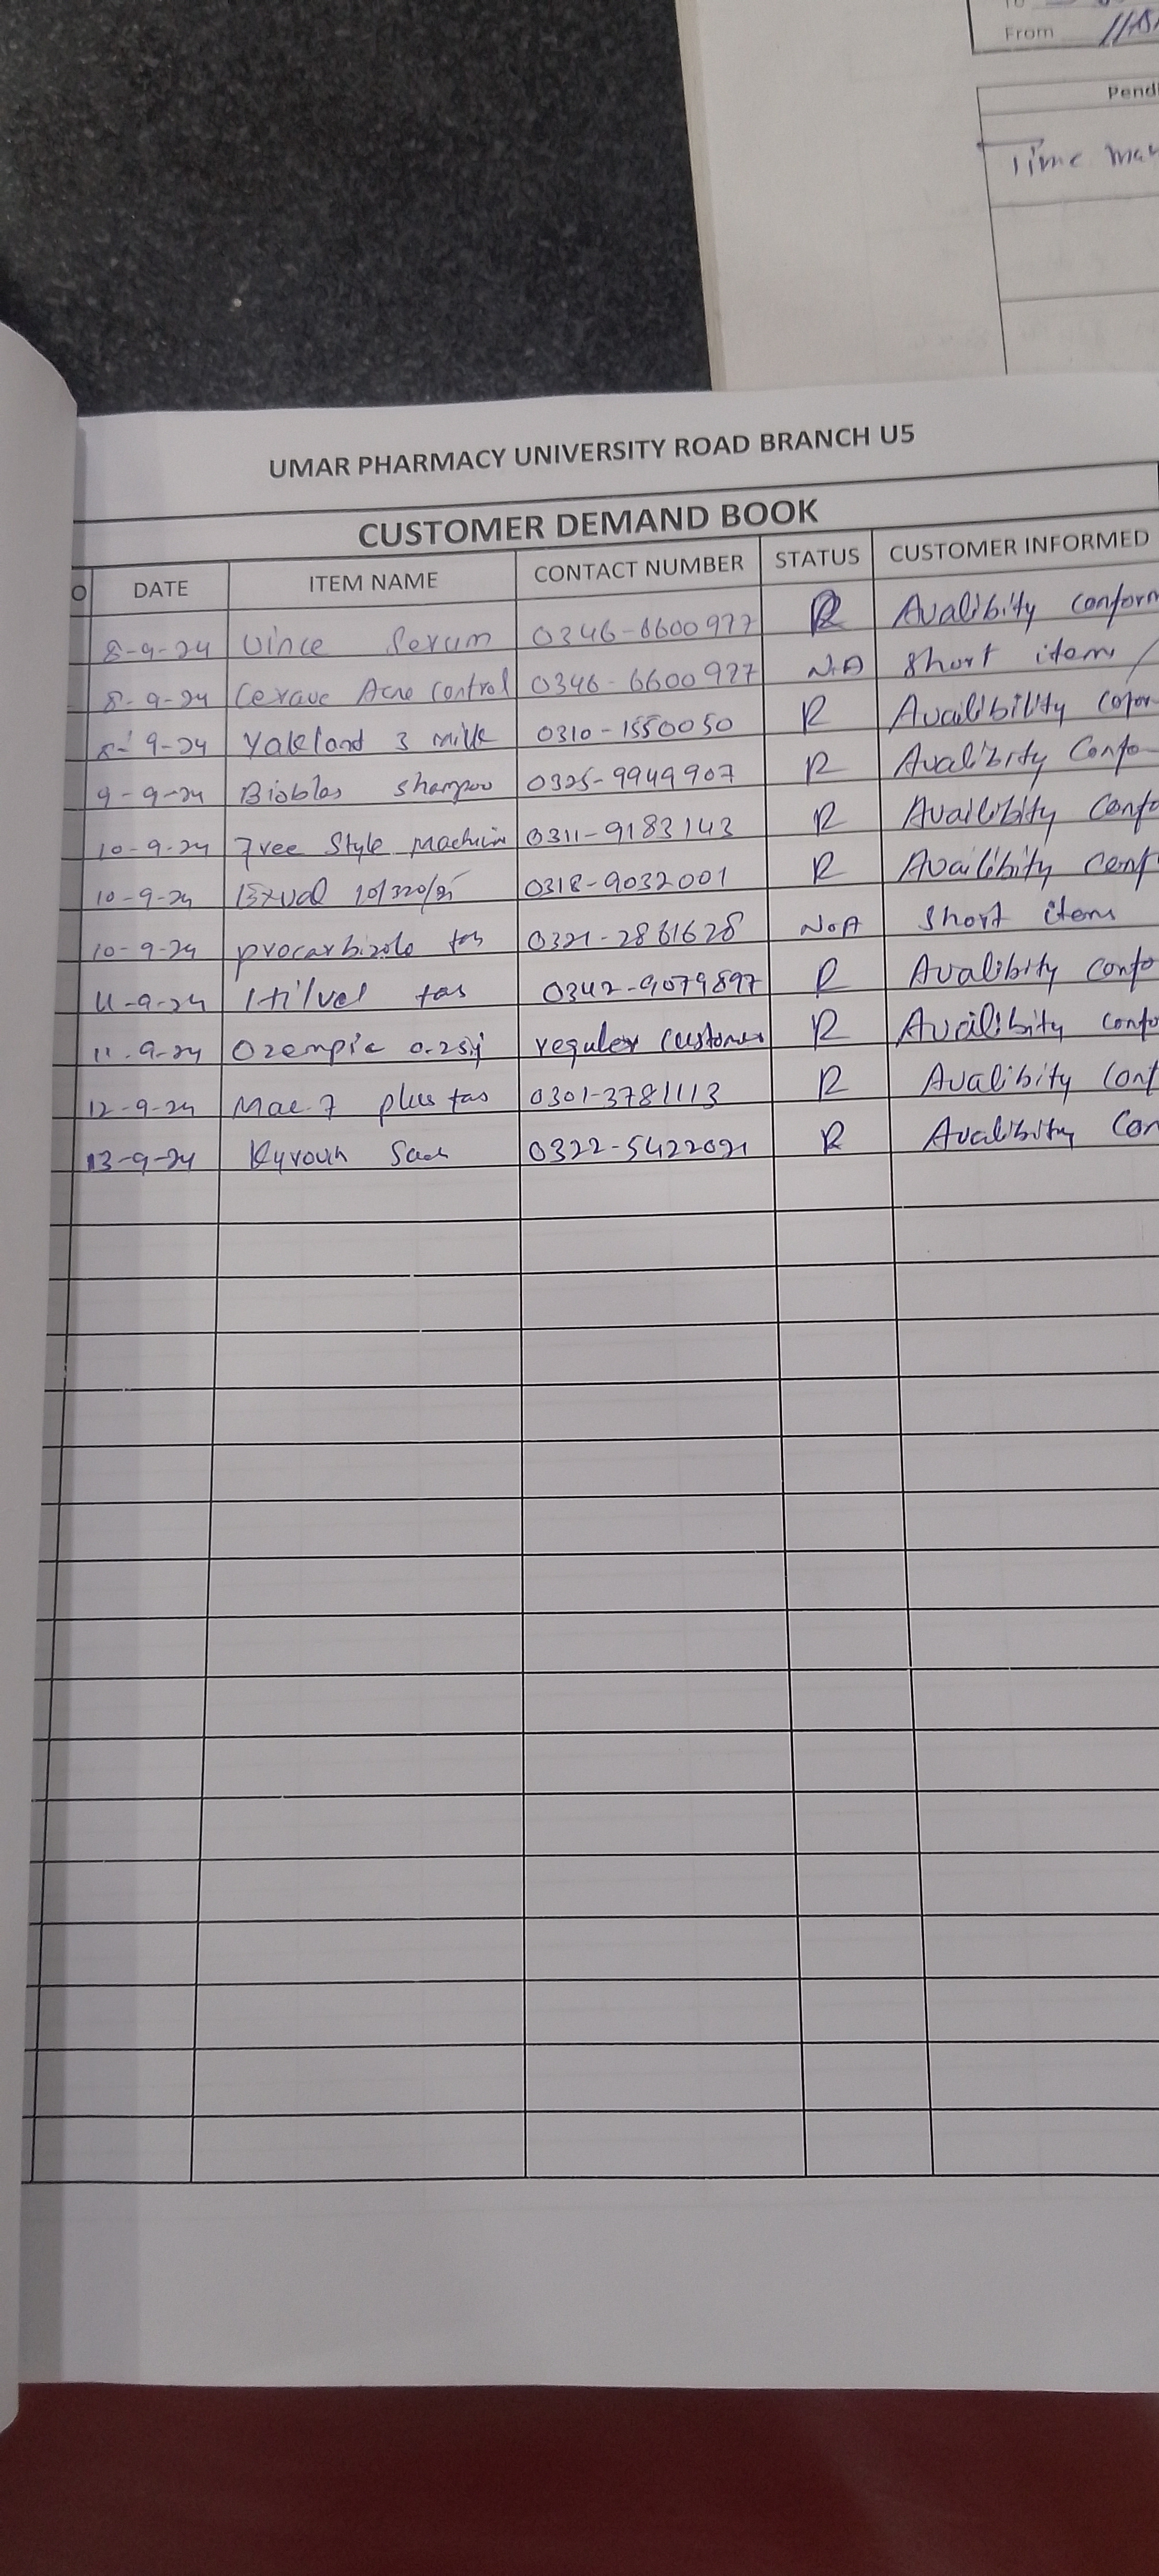 From
Pend
Time
UMAR PHARMACY UNIVERSITY ROAD BRANCH U5
CUSTOMER DEMAND BOOK
O DATE ITEM NAME CONTACT NUMBER STATUS CUSTOMER INFORMED
8-9-24 Vince Serum 0346-6600977 R Avalibity conform
8-9-24 Cerave Acne Control 0346-6600977 N.A Short item
8-9-24 Yakland 3 milk 0310-1550050 R Availibility
9-9-24 shampoo 0325-9949907 R Avalibity Confo
10-9-24 Free Style Machin 0311-9183143 R Availibity Confo
10-9-24 0318-9032001 R Availibity Conf
10-9-24 0321-2861628 N.A Short item
11-9-24 0342-9079897 R Avalibity Confo
11-9-24 Ozempic regular Customer R Availibity Confo
12-9-24 Mac.7 plus 0301-3781113 R Avalibity Conf
13-9-24 0322-5422021 R Avalibity Con